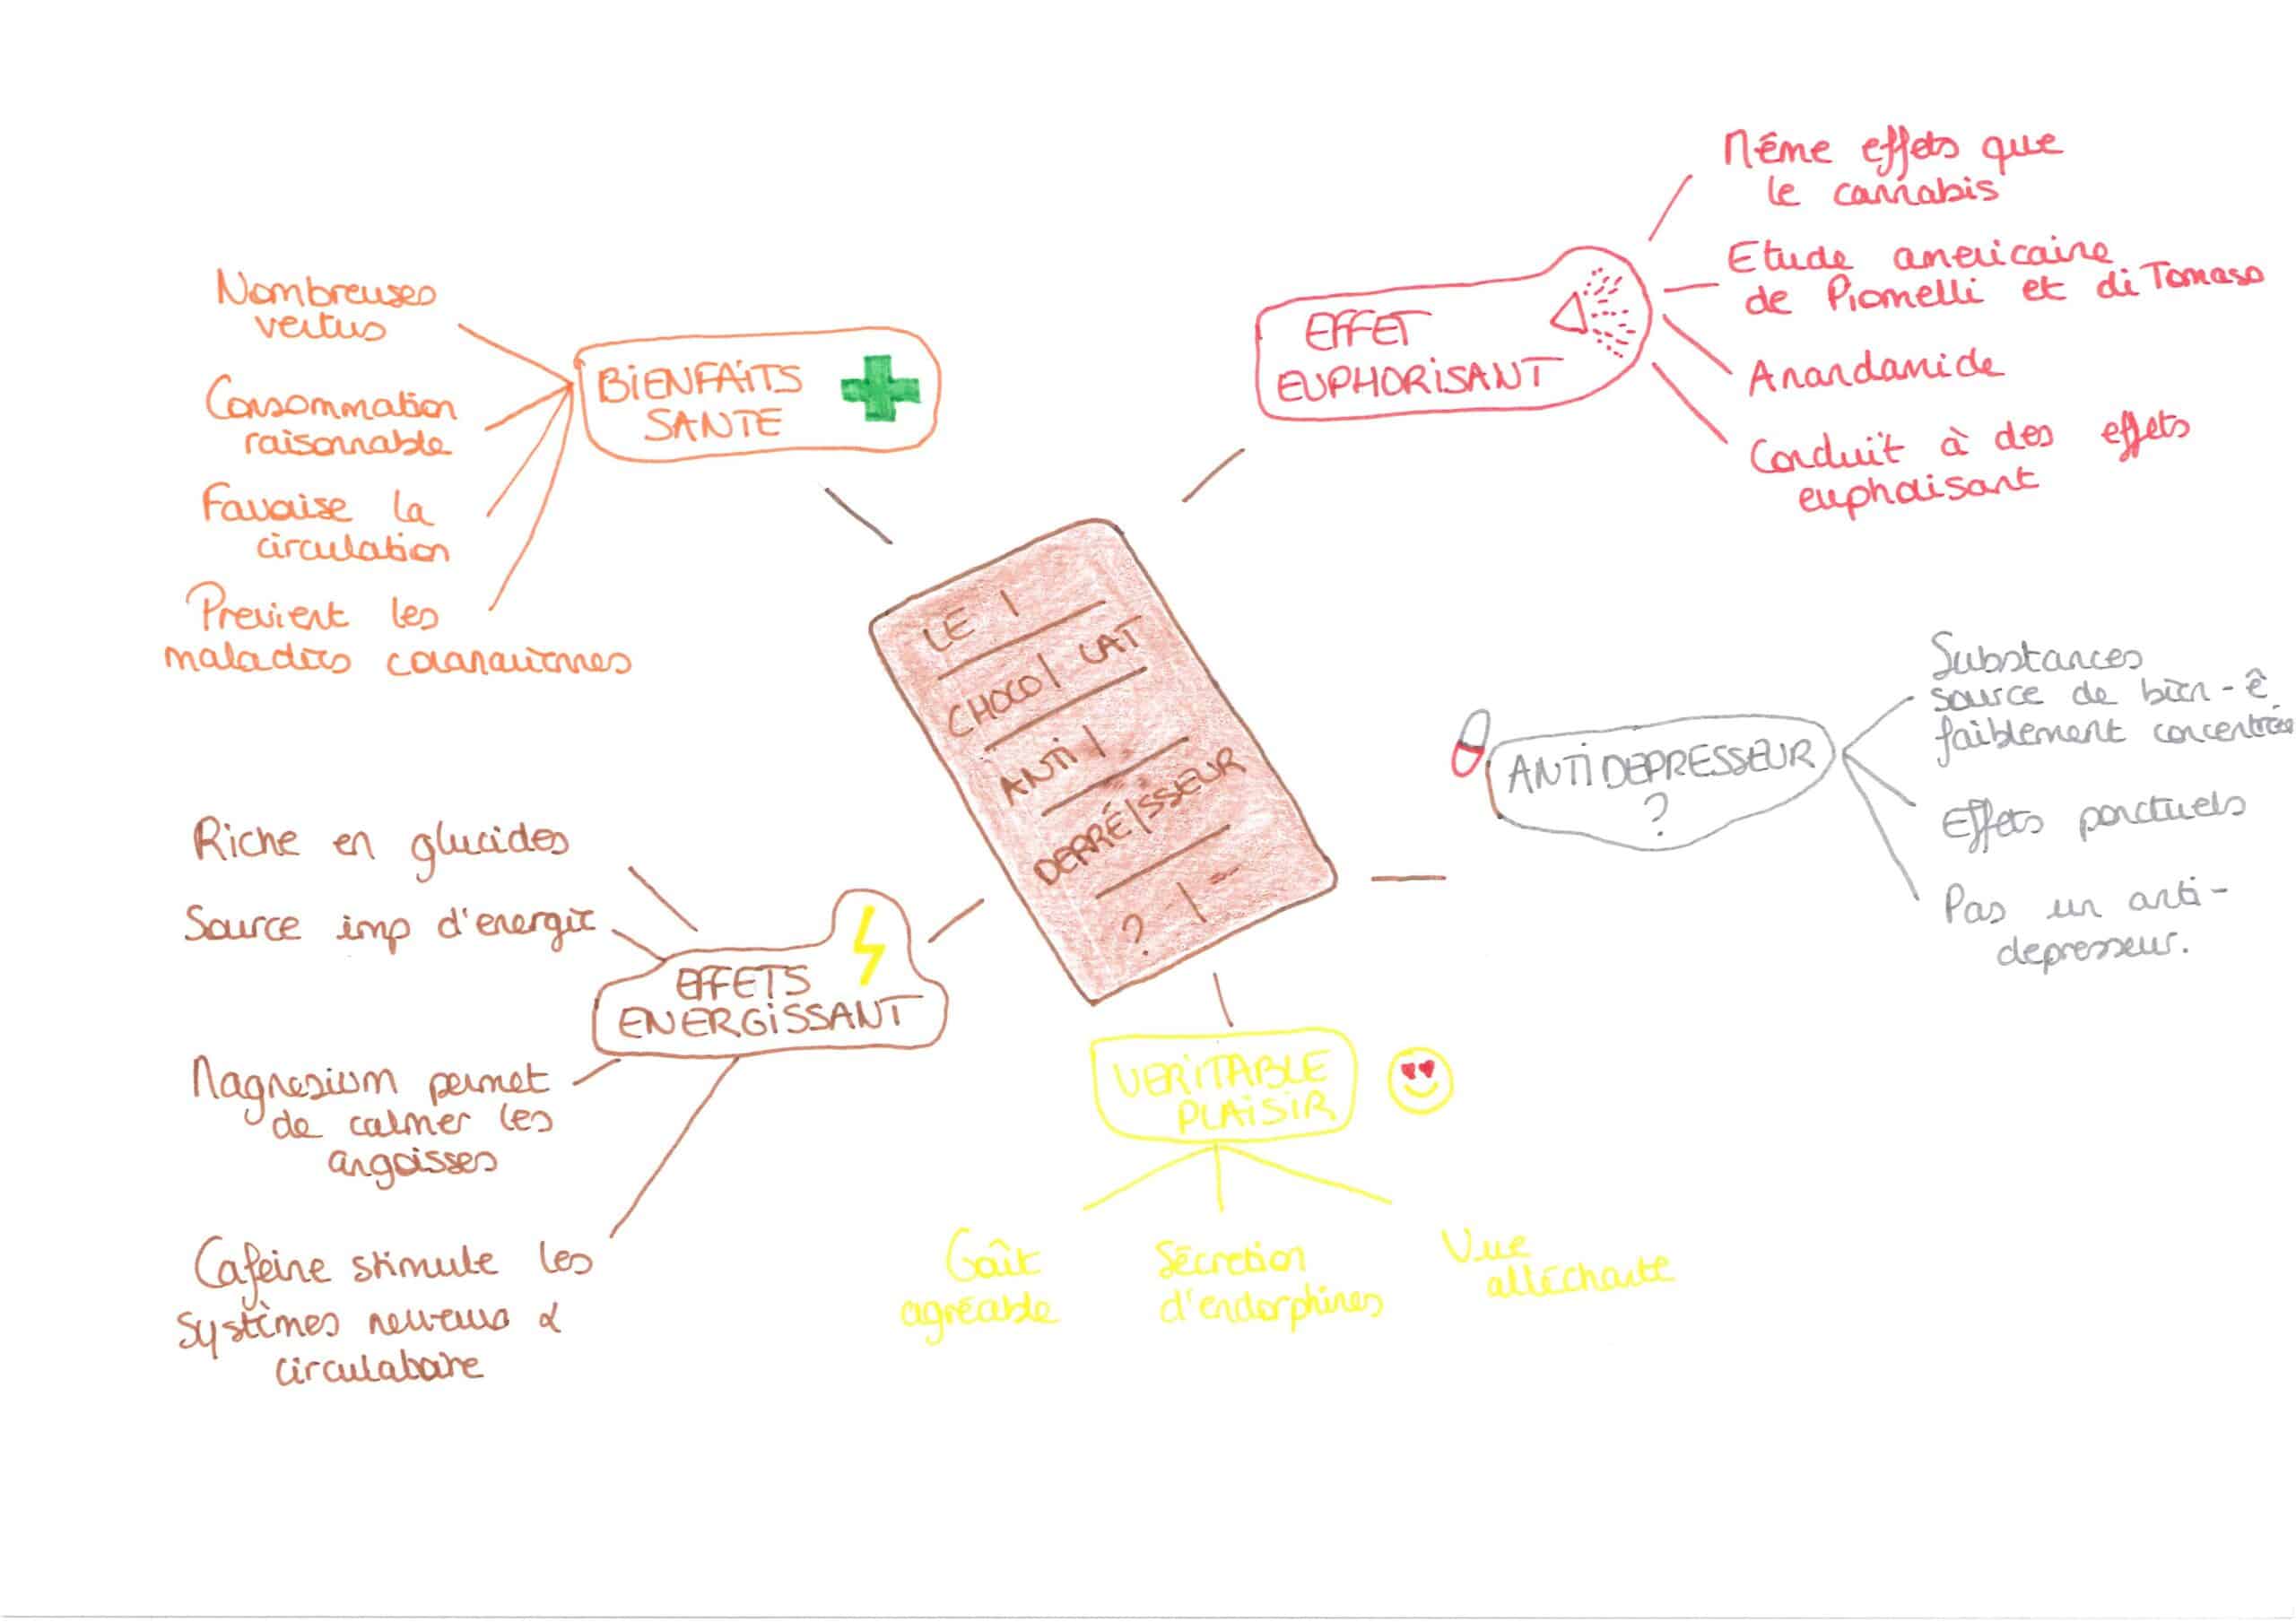 LE
CHOCOLAT
ANTI
DEPRÉSSEUR
?
BiENFAiTS
SANTE
Nombreuses
vertus
Consommation
raisonnable
Favorise la
circulation
Previent les
maladies coronariennes
EFFET
EUPHORiSANT
Même effets que
le cannabis
Etude americaine
de Piomelli et di Tomaso
Anandamide
Conduit à des effets
euphorisant
ANTiDEPRESSEUR
?
Substances
source de bien-ê
faiblement concentrées
Effets ponctuels
Pas un anti-
depresseur.
VERiTABLE
PLAiSiR
Goût
agréable
Sécretion
d'endorphines
Vue
alléchante
EFFETS
ENERGiSSANT
Riche en glucides
Source imp d'energie
Magnesium permet
de calmer les
angoisses
Cafeine stimule les
systèmes nerveux &
circulatoire